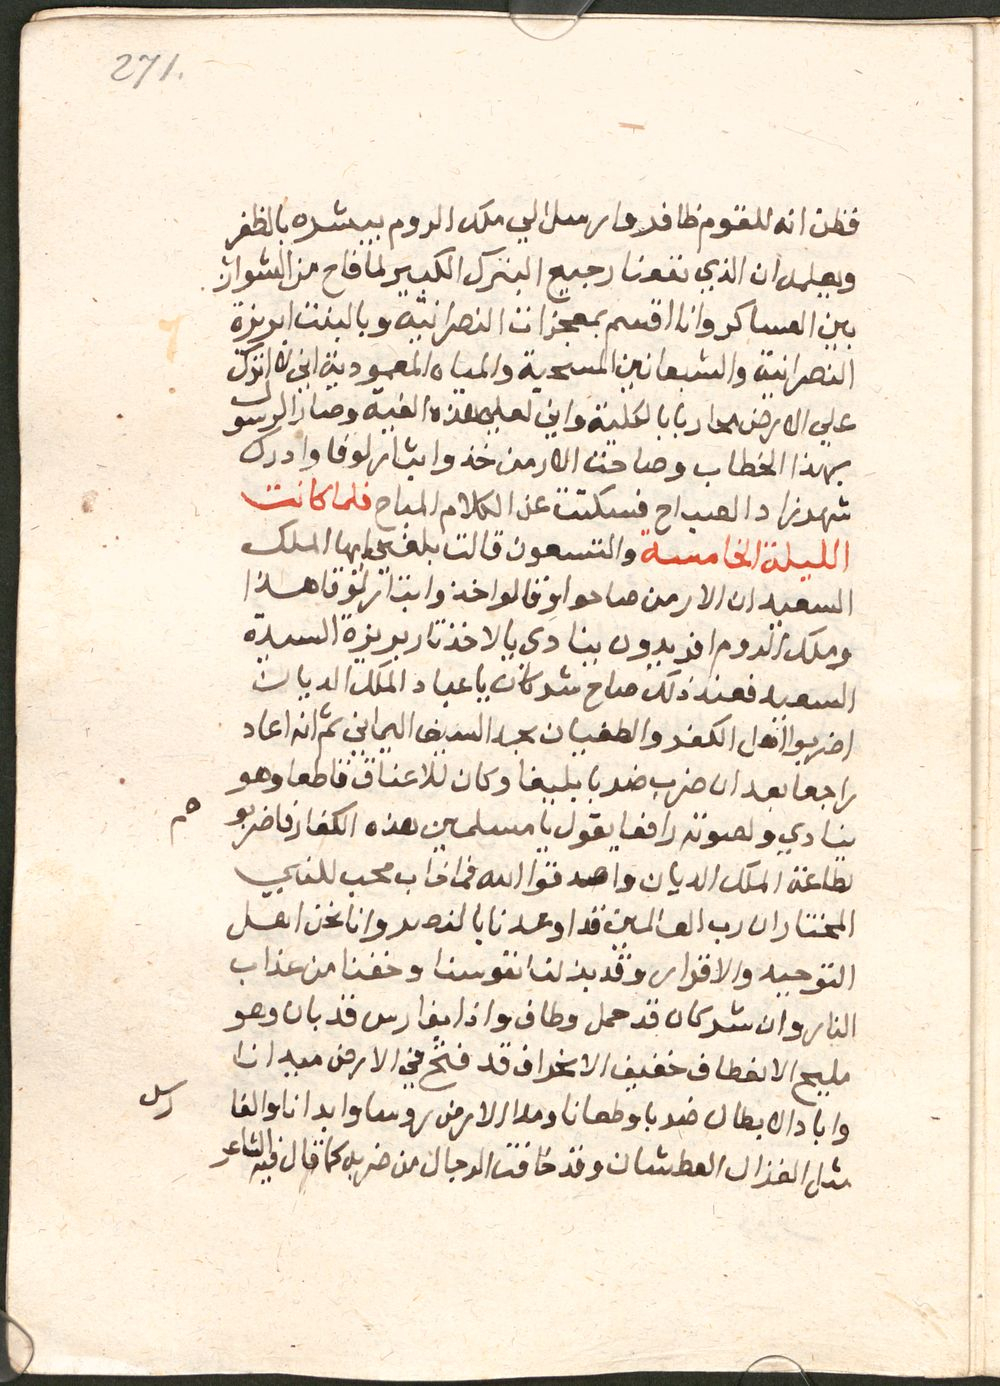 271.
فظن انه للقوم ظافر وارسل الي ملك الروم يبشره بالظفر
ويعلمه ان الذي نفعنا رجيع البترك الكبير لما فاح من الشوارب
بين العساكر وانا اقسم بمعجزات النصرانية وبالبنت ابريزة
النصرانية والشعانين المسحية والمياه المعمودية اني لا اترك
علي الارض محاربا بالكلية واني لعلي هذه النية وصار الرسول
بهذا الخطاب وصاحت الارمن خذوا بثار لوقا وادرك
شهرزاد الصباح فسكتت عن الكلام المباح فلما كانت
الليلة الخامسة والتسعون قالت بلغني ايها الملك
السعيد ان الارمن صاحوا وقالوا خذوا بثار لوقا هذا
وملك الروم افريدون ينادي يا لاخذ ثار بريزة السيدة
السعيد فعند ذلك صاح شركان يا عباد الملك الديان
اضربوا اهل الكفر والطغيان بحد السيف اليماني ثم انه اعاد
راجعا بعد ان ضرب ضربا بليغا وكان للاعناق قاطعا وهو
ينادي ولصوته رافعا يقول يا مسلمين هذه الكفار فاضربو
بطاعة الملك الديان واصدقوا الله فما خاب محب للنبي
المختار ان رب العالمين قد اوعدنا بالنصر وانا نحن اهل
التوحيد والاقرار وقد بذلنا انفوسنا وخفنا من عذاب
النار وان شركان قد حمل وطاف واذا بفارس قد بان وهو
مليح الانعطاف خفيف الانحراف قد فتح في الارض ميدانا
واباد الابطال ضربا وطعانا وملا الارض روسا وابدانا والفا
مثل الغزال العطشان وقد خافت الرجال من ضربه كما قال فيه الشاعر